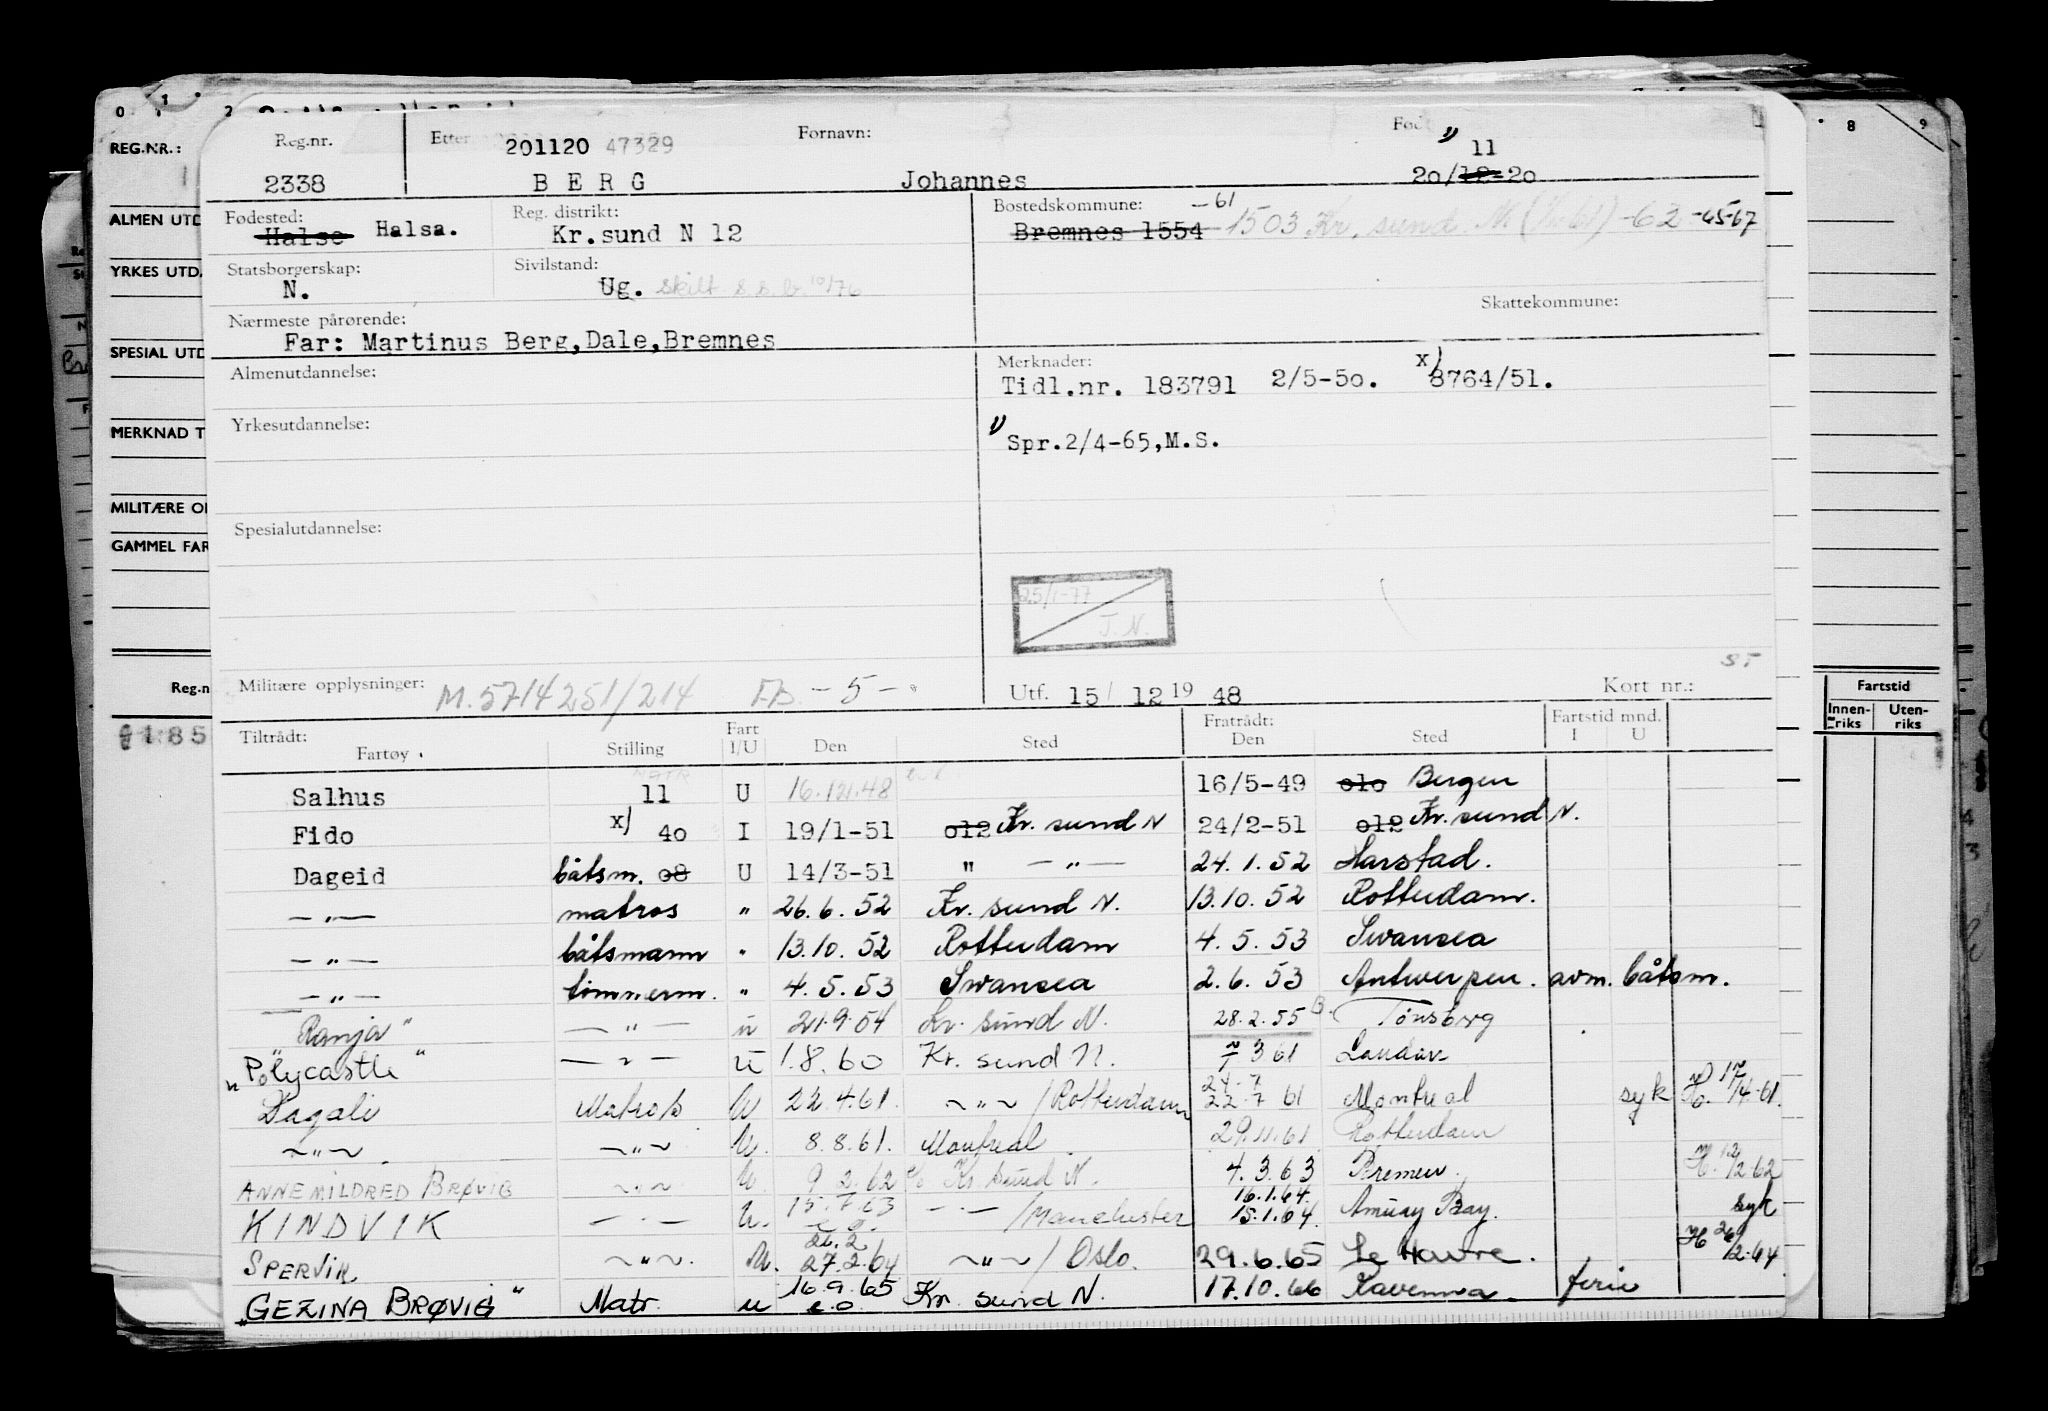 0 1 2 8 9
REG.NR.:
Reg.nr. Etter 201120 47329 Fornavn: Fød
1) 11
2338 BERG Johannes 20/12-20
ALMEN UTD
Fødested: Halse Halsa. Reg. distrikt: Kr.sund N 12 Bostedskommune: -61
Bremnes 1554 1503 Kr. sund N -62 -65-67
YRKES UTD.
Statsborgerskap: N. Sivilstand: Ug. skilt s.s.b. 10/76
Skattekommune:
Nærmeste pårørende:
Far: Martinus Berg,Dale,Bremnes
SPESIAL UTD
Almenutdannelse: Merknader:
Tidl.nr. 183791 2/5-50. x) 8764/51.
MERKNAD T
Yrkesutdannelse: 1) Spr.2/4-65,M.S.
MILITÆRE O
Spesialutdannelse:
GAMMEL FAR
25/1-77
J.N.
ST
Reg.n
Militære opplysninger: M.5714251/214 F.D. -5- Utf. 15/ 12 19 48 Kort nr.:
Fartstid
Innen-riks Uten-riks
Tiltrådt: Fart Fratrådt: Fartstid mnd.
Fartøy Stilling I/U Den Sted Den Sted I U
Salhus MATR 11 U 16.12.48 16/5-49 olo Bergen
Fido x) 40 I 19/1-51 o12 Kr. sund N 24/2-51 o12 Kr. sund N.
Dageid båtsm. o8 U 14/3-51 " — " — 24.1.52 Harstad.
— " — matros " 26.6.52 Kr. sund N. 13.10.52 Rotterdam.
— " — båtsmann " 13.10.52 Rotterdam 4.5.53 Swansea
— " — timmerm. " 4.5.53 Swansea 2.6.53 Antwerpen. avm. båtsm.
"Ranja" — " — u 21.9.54 Kr. sund N. 28.2.55 Tønsberg
"Polycastle" — " — u 1.8.60 Kr. sund N. 3 61
Dagali Matros U 22.4.61. ~ " ~ /Rotterdam 24-7 22.7 61 Montreal syk 17/4-61.
~ " ~ ~ " ~ U. 8.8.61. Montreal 29.11.61 Rotterdam
ANNE MILDRED BRØVIG ~ " ~ U. 9.2.62 Kr sund N. 4.3.63 Bremen. 12/2-62
KINDVIK — " — U. 15.7.63 e.o. — " — /Manchester 16.1.64. 15.1.64. Amuay Bay. syk
SPERVIK ~ " ~ U. 26.2 27.2.64 ~ " ~ / Oslo. 29.6.65 Le Havre. 26/2-64
"GEZINA BRØVIG" Matr. u 16.9.65 e.o. Kr. sund N. 17.10.66 Ravenna. ferie